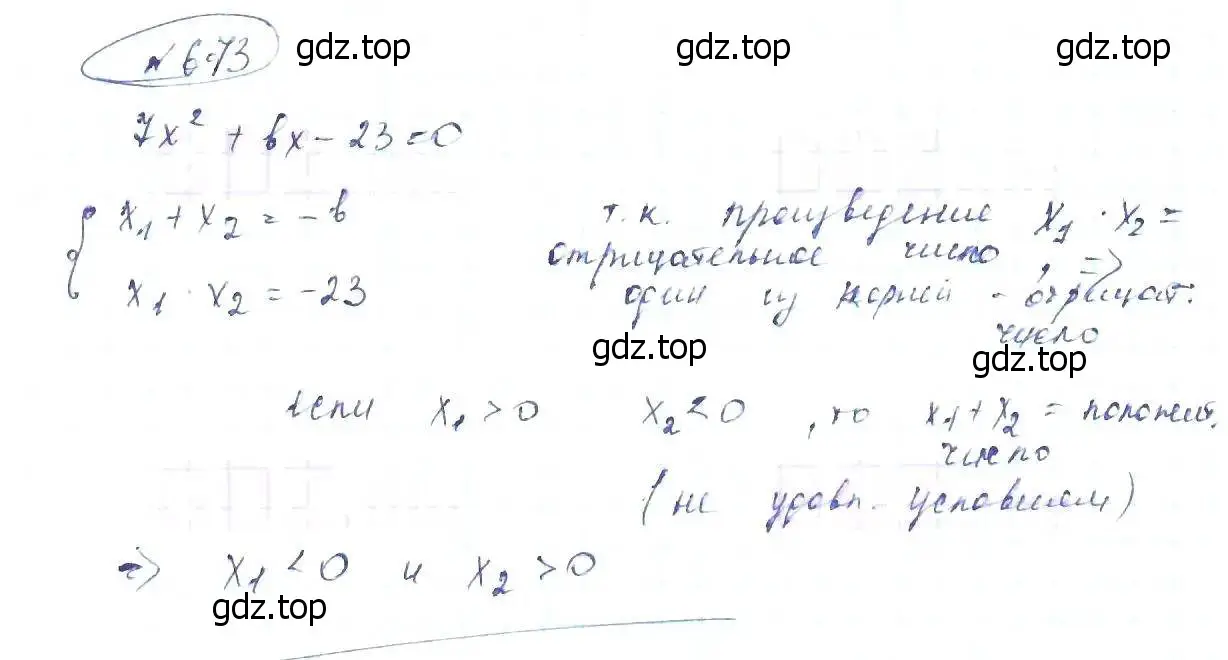 № 673 gdz.top gdz.top gdz.top
7x² + bx - 23 = 0
x₁ + x₂ = - b т.к. произведение x₁ · x₂ =
отрицательное число, =>
x₁ · x₂ = -23 один из корней - отрицат.
число
gdz.top gdz.top
если x₁ > 0 x₂ < 0, то x₁ + x₂ = положит.
число
(не удовл. условиям)
=> x₁ < 0 и x₂ > 0
gdz.top